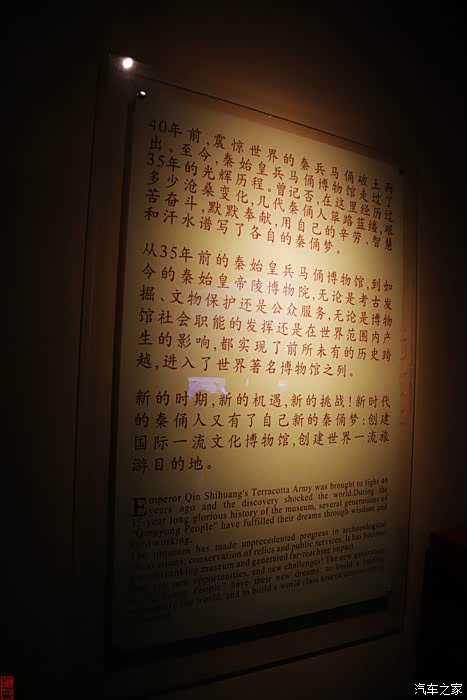 40年前,震惊世界的秦兵马俑破土而
出。至今,秦始皇兵马俑博物馆走过了
35年的光辉历程。曾记否,在这里经历过
多少沧桑变化,几代秦俑人筚路蓝缕,艰
苦奋斗,默默奉献,用自己的辛劳、智慧
和汗水谱写了各自的秦俑梦。
从35年前的秦始皇兵马俑博物馆,到如
今的秦始皇帝陵博物院,无论是考古发
掘、文物保护还是公众服务,无论是博物
馆社会职能的发挥还是在世界范围内产
生的影响,都实现了前所未有的历史跨
越,进入了世界著名博物馆之列。
新的时期,新的机遇,新的挑战!新时代
的秦俑人又有了自己新的秦俑梦:创建
国际一流文化博物馆,创建世界一流旅
游目的地。
Emperor Qin Shihuang's Terracotta Army was brought to light 40
years ago and the discovery shocked the world.During the
35-year long glorious history of the museum, several generations of
"Qingyong People" have fulfilled their dreams through wisdom and
hard working.
The museum has made unprecedented progress in archaeological
excavations, conservation of relics and public services. It has become
museum and generated far-reaching impact
new opportunities, and new challenge! The new generation
People" have their new dreams: to build a leading
the world, and to build a world class tourist
汽车之家